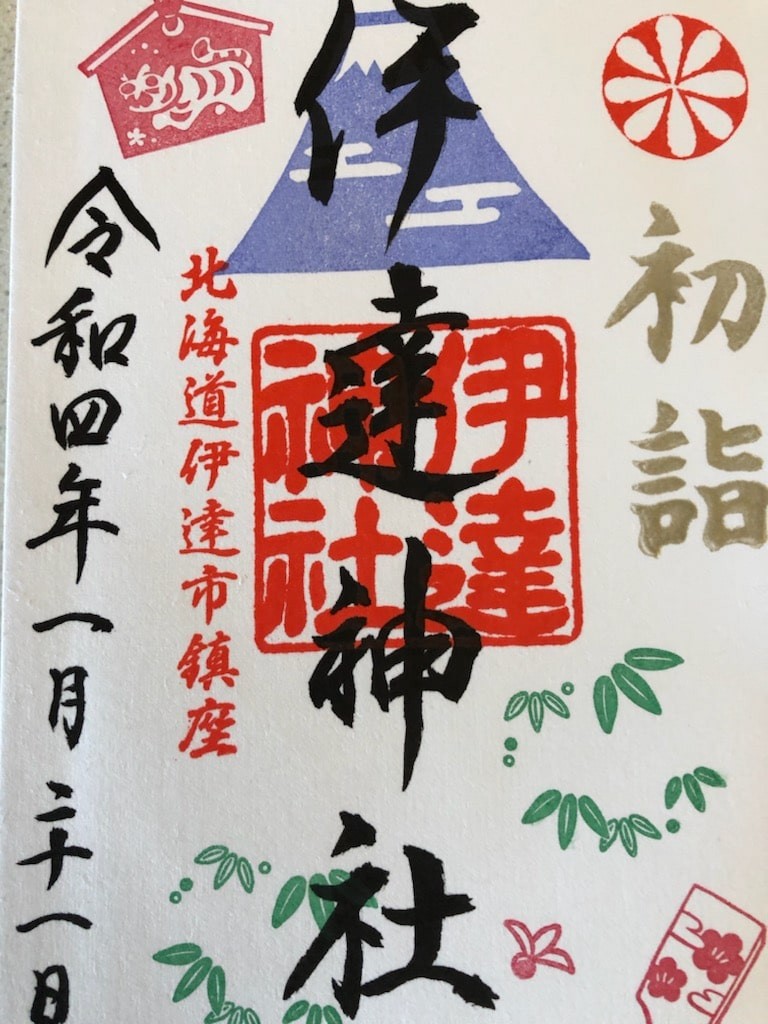 初詣
伊達神社
伊達
神社
北海道伊達市鎮座
令和四年一月二十一日